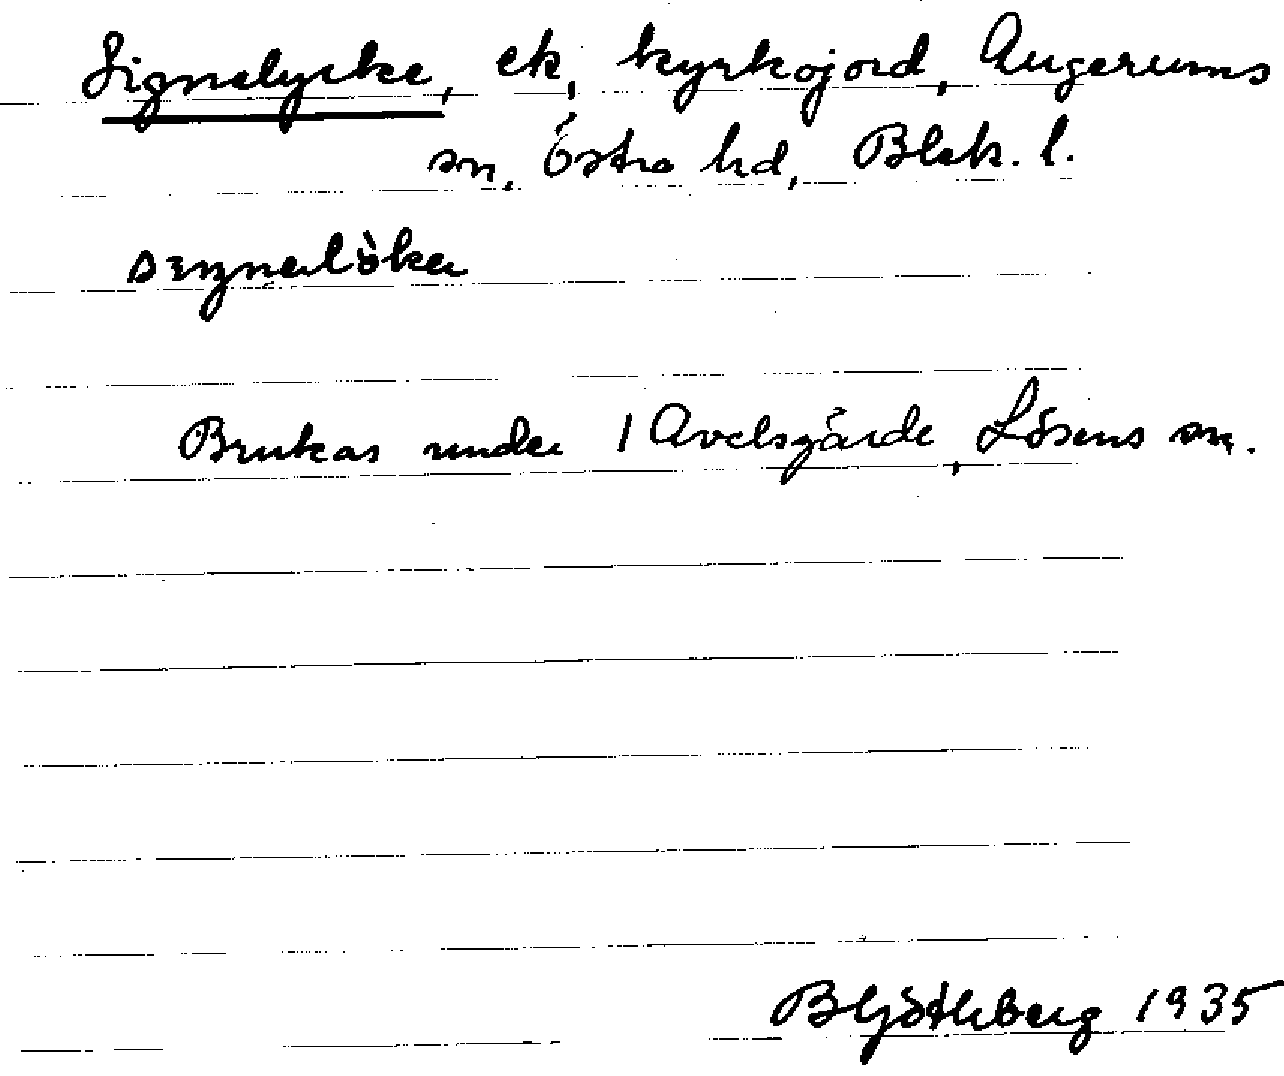 Signelycke, ek, kyrkojord, Augerums
sn, Östra hd, Blek. l.
Brukas under 1 Avelsgärde, Lösens sn.
1935